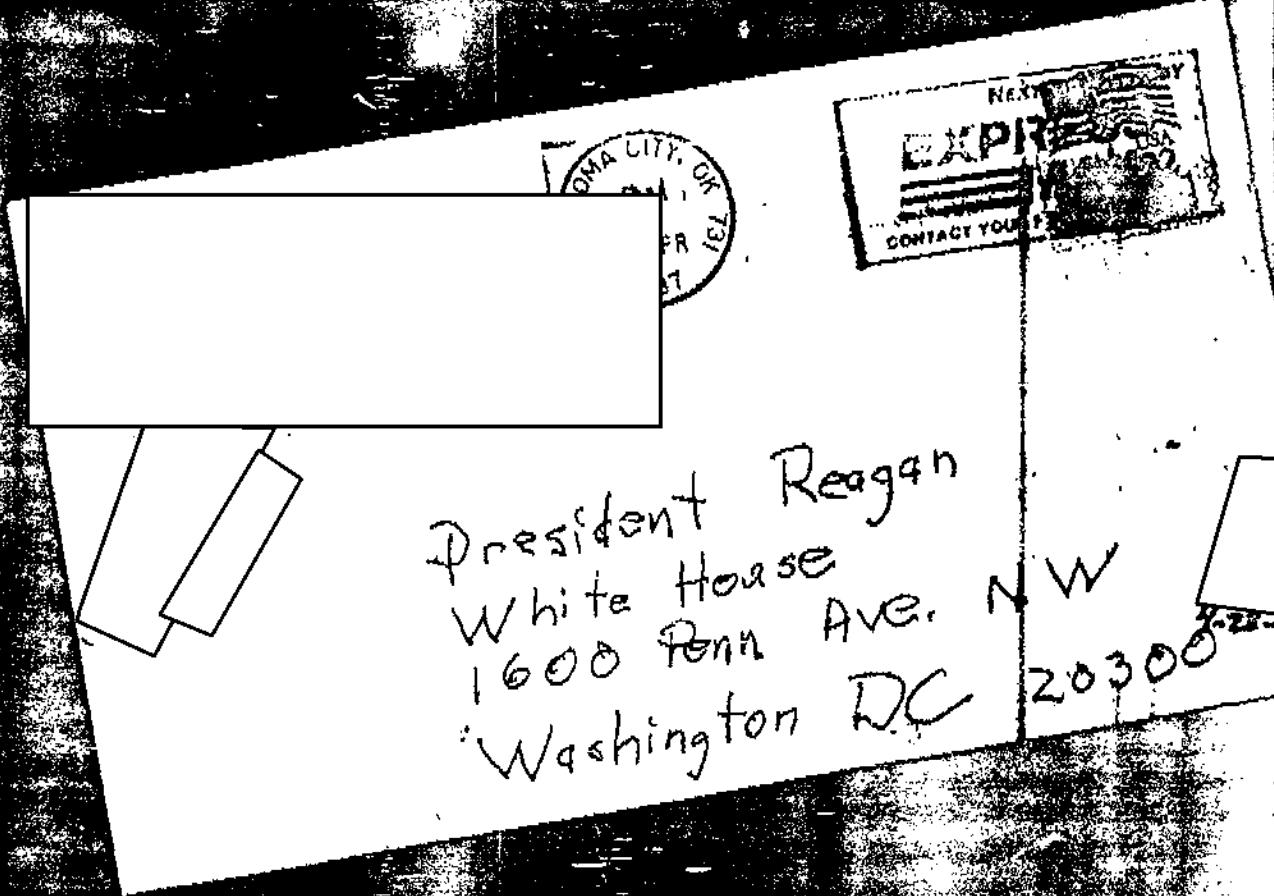 OMA CITY, OK 731
PR
87
NEXT
EXPRE
CONTACT YOUR P
President Reagan
White House
1600 Penn Ave. NW
Washington D.C 20300